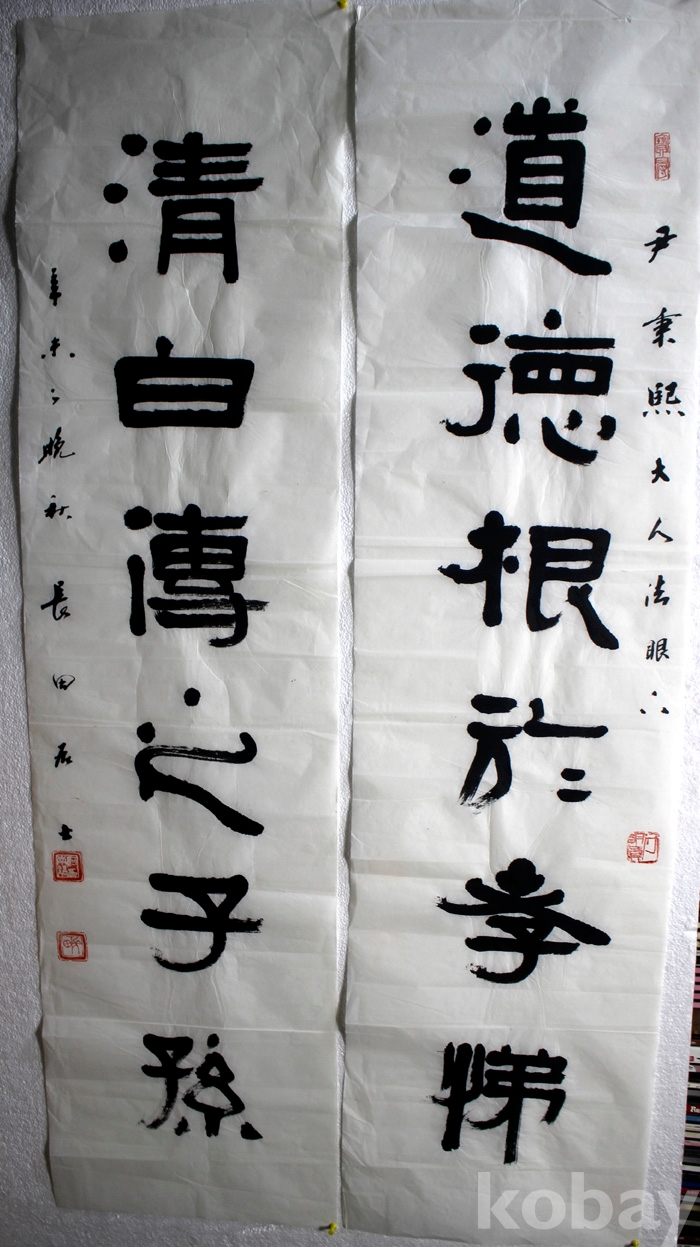 尹秉熙大人法眼下
道德根於孝悌
清白傳之子孫
辛未之晩秋 長田居士
kobay